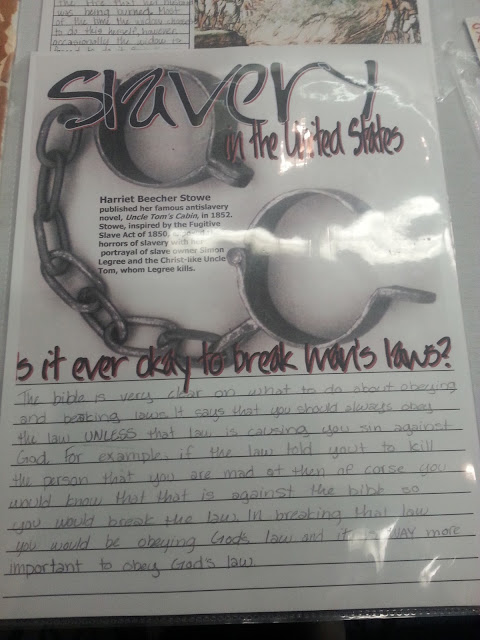 were being burned. Most
of the time the widow
to do this herself, however
occasionally the widow is
Slavery
in the United States
Harriet Beecher Stowe
published her famous antislavery
novel, Uncle Tom's Cabin, in 1852.
Stowe, inspired by the Fugitive
Slave Act of 1850,
horrors of slavery with her
portrayal of slave owner Simon
Legree and the Christ-like Uncle
Tom, whom Legree kills.
Is it ever okay to break man's laws?
The bible is very clear on what to do about obeying
and beaking laws. It says that you should always obey
the law, UNLESS that law is causing you sin against
God. For example, if the law told you to kill
the person that you are mad at then of corse you
would know that that is against the bible so
you would break the law. In breaking that law
you would be obeying God's law and it is WAY more
important to obey God's law.